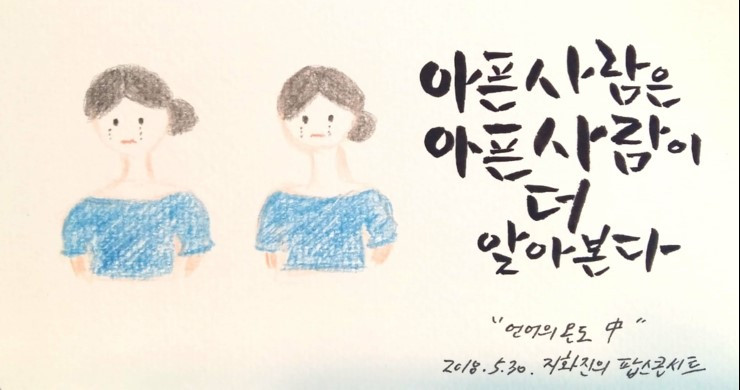 아픈 사람은
아픈 사람이
더
알아본다
"언어의 온도 中"
2018.5.30. 지화진의 팝스콘서트